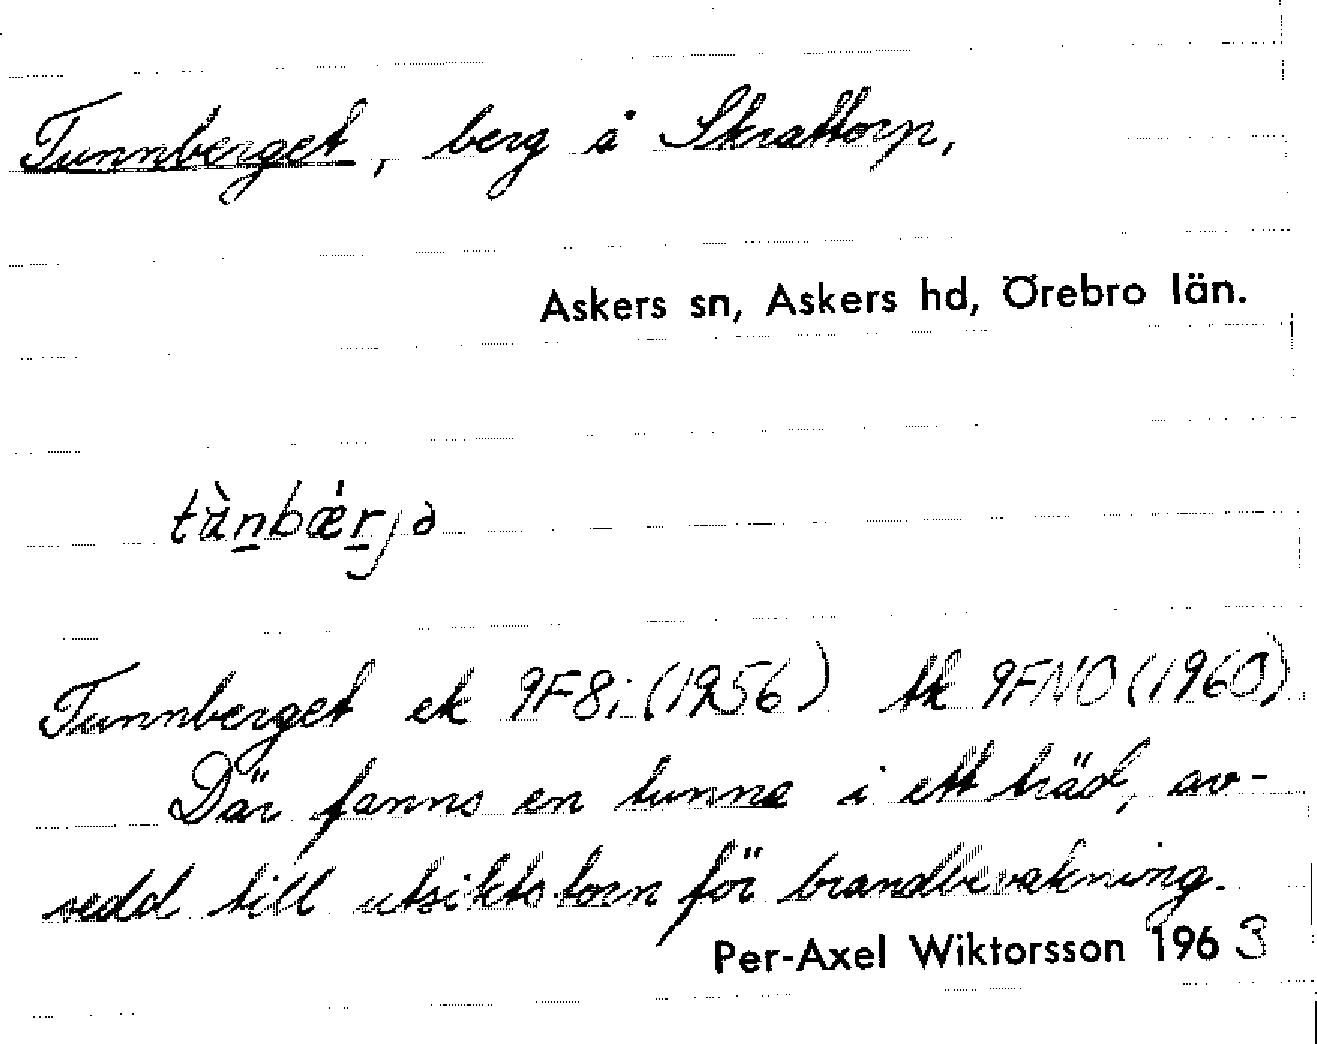 Tunnberget, berg å Skrattorp,
Askers sn, Askers hd, Örebro län.
tànbǽrjə
Tunnberget ek 9F8i (1956) tk 9FNO (1960)
Där fanns en tunna i ett träd, av-
sedd till utsiktstorn för brandbevakning.
Per-Axel Wiktorsson 1963